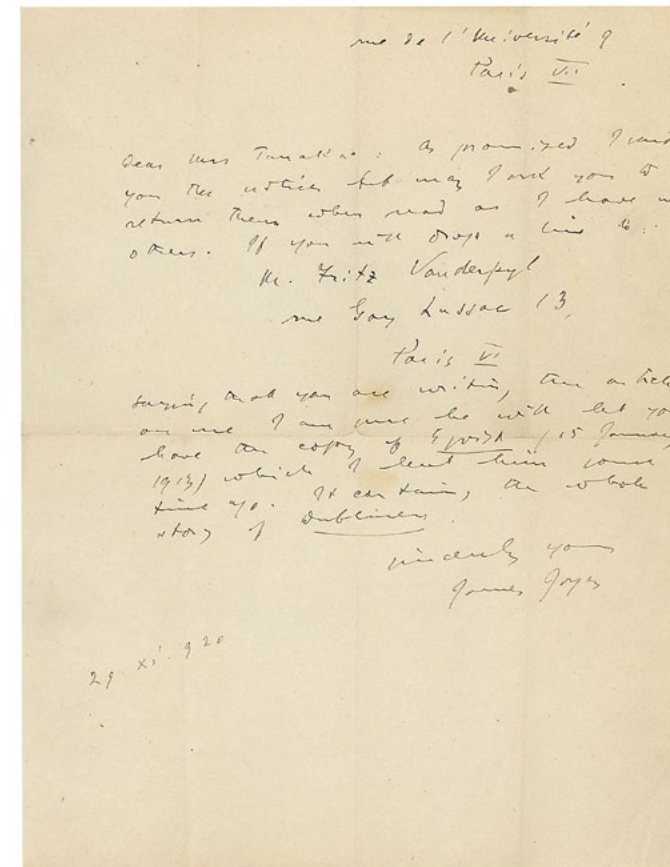 rue de l'Université 9
Paris VII
Dear Mrs : As promised I send
you the notices but may I ask you to
return them when read as I have no
others. If you will drop a line to :
Mr. Fritz Vanderpyl
rue Gay Lussac 13,
Paris VI
saying that you are writing the article
on me I am sure he will let you
have the copy of Egoist (15 January
191) which I lent him some
time ago. It contains the whole
story of Dubliners.
sincerely yours
James Joyce
29 xi. 920